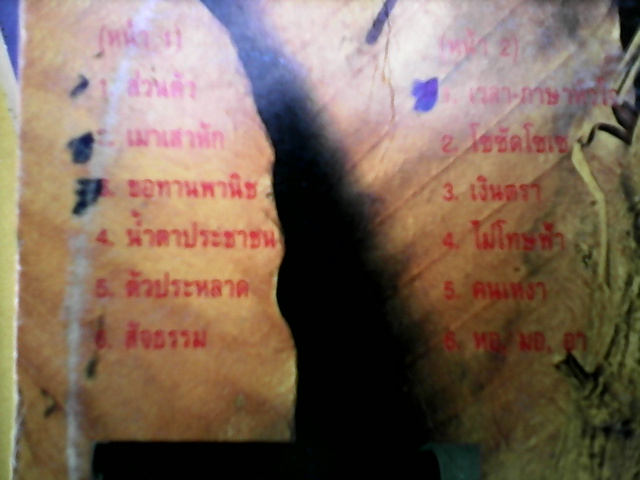 (หน้า 1)
1. ส่วนตัว
2. เมาเสาหัก
3. ขอทานพานิช
4. น้ำตาประชาชน
5. ตัวประหลาด
6. สัจธรรม
(หน้า 2)
1. เวลา-ภาษาหัวใจ
2. โซซัดโซเซ
3. เงินตรา
4. ไม่โทษฟ้า
5. คนเหงา
6. หอ, มอ, อา